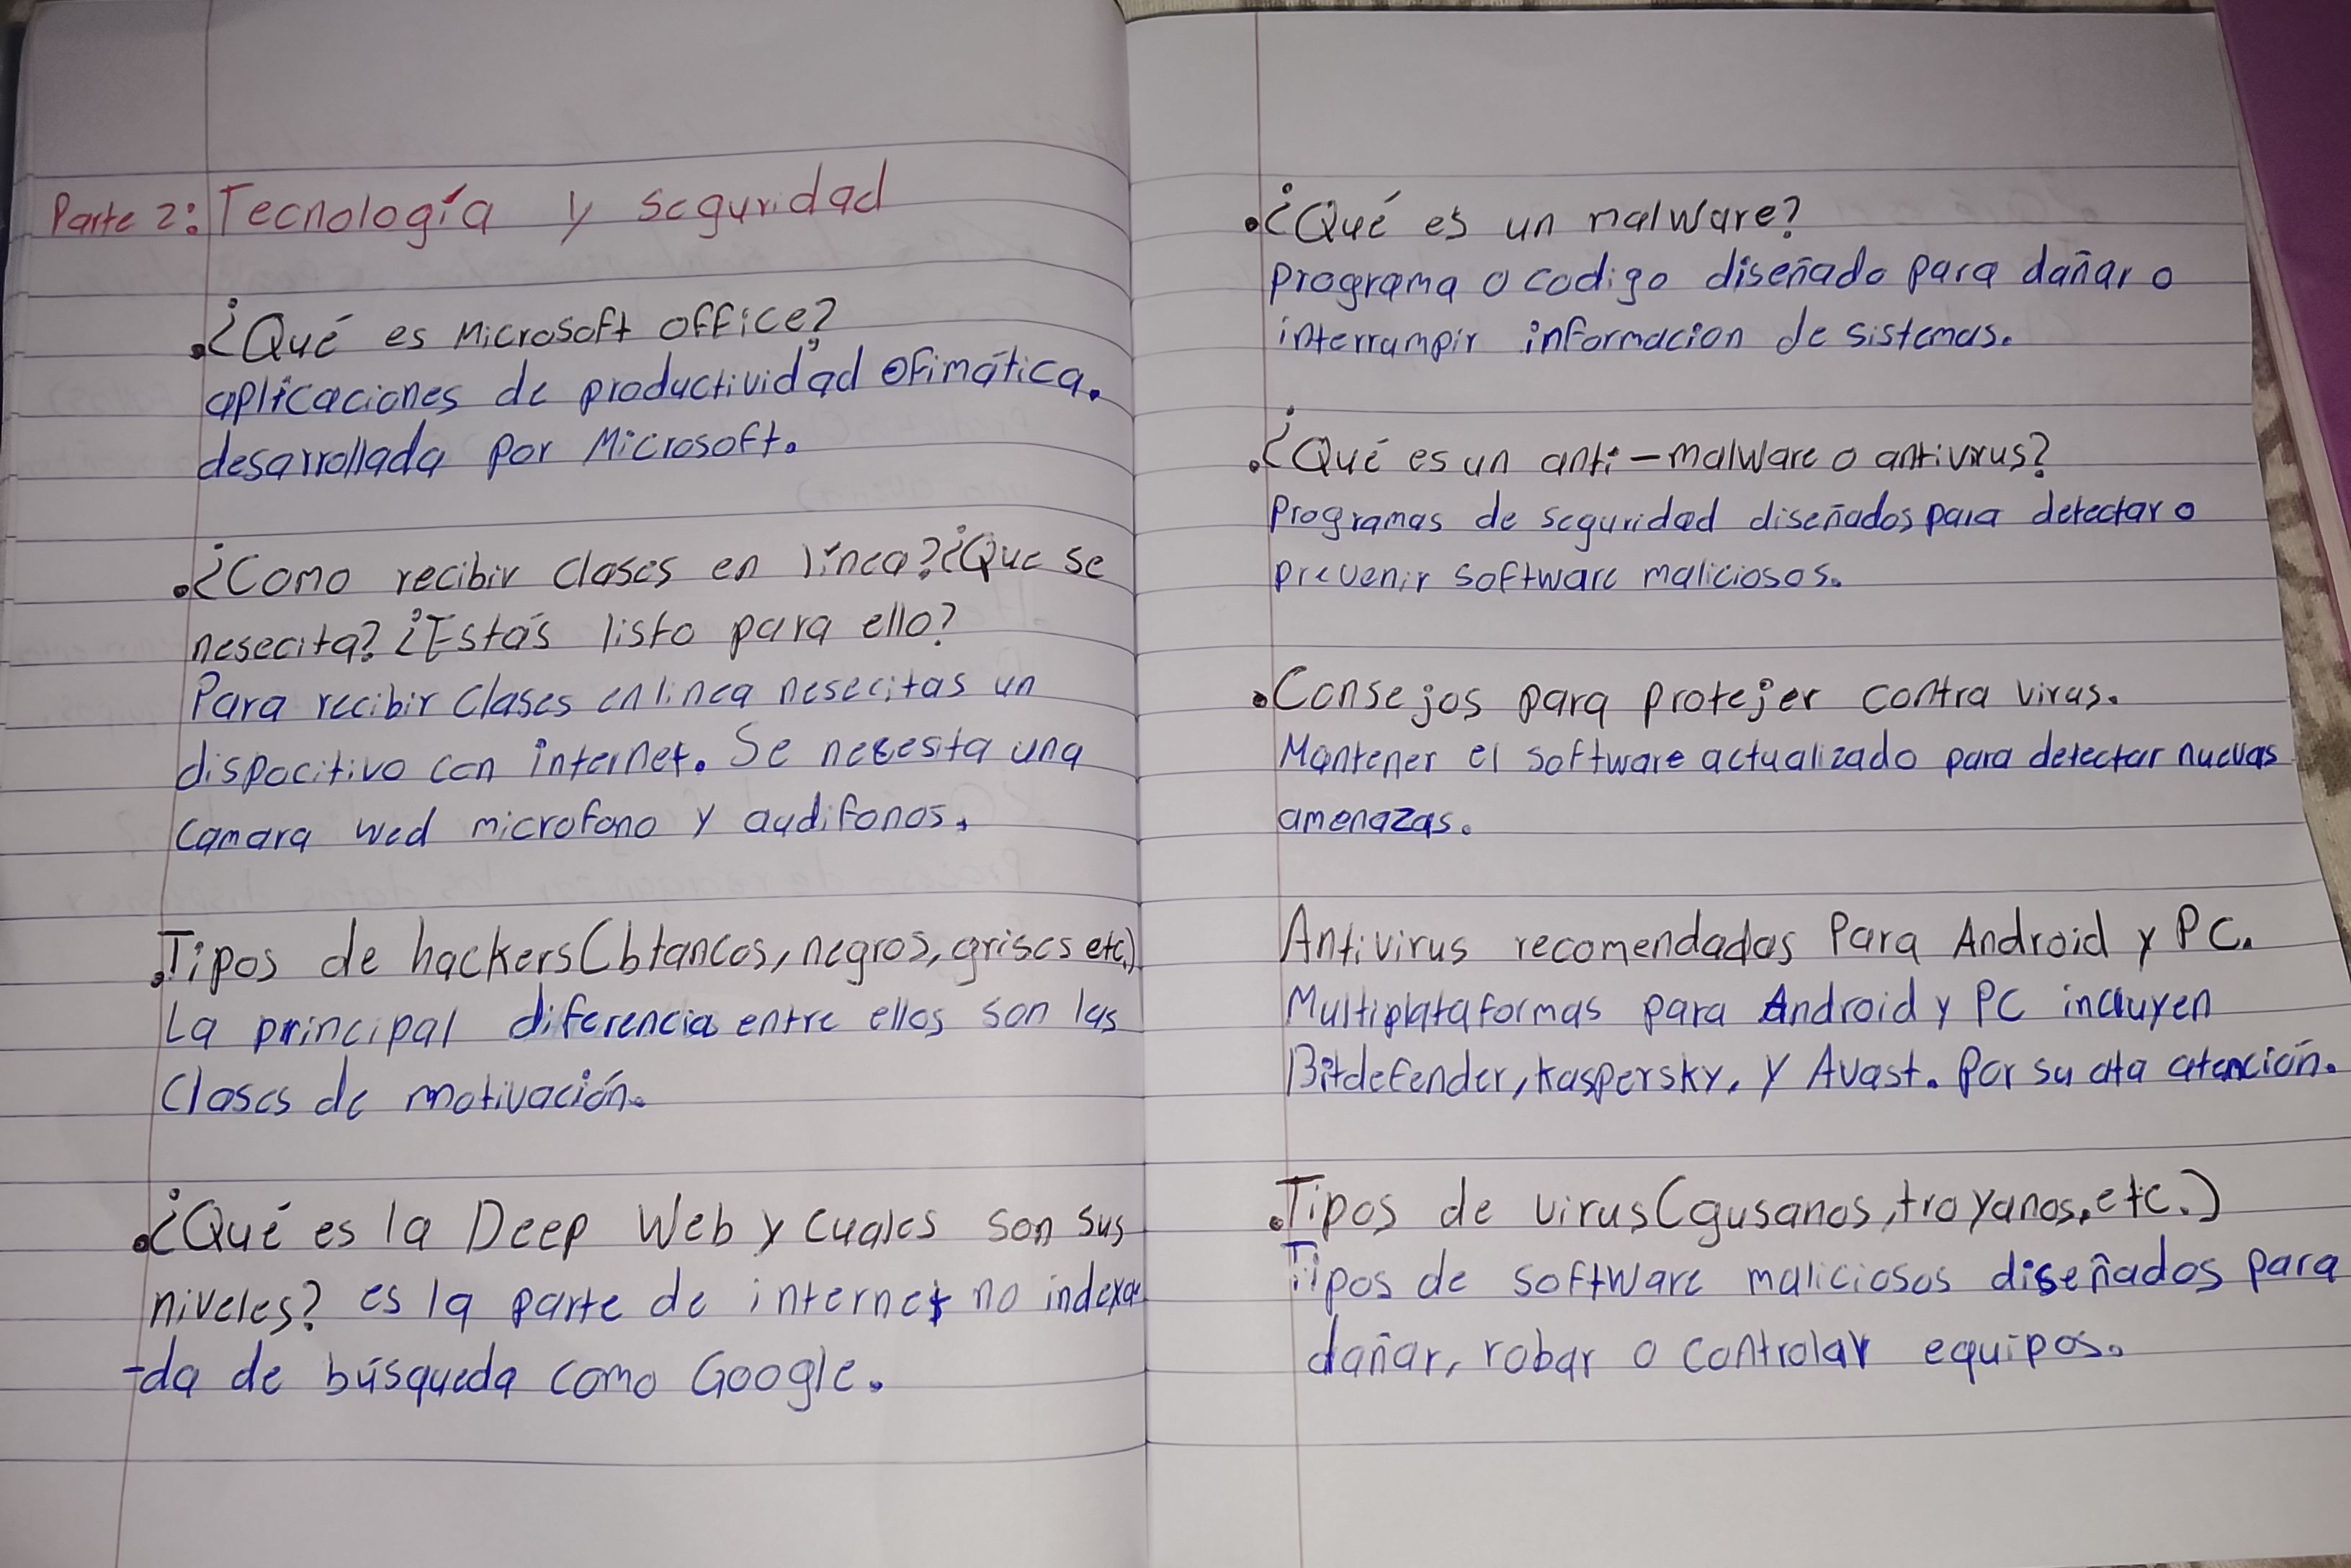 Parte 2: Tecnología y seguridad
¿Qué es Microsoft office?
aplicaciones de productividad ofimática.
desarrollada por Microsoft.
¿Como recibir clases en línea? ¿Que se
nesecita? ¿Estás listo para ello?
Para recibir clases en linea nesecitas un
dispocitivo con internet. Se necesita una
camara wed microfono y audifonos.
Tipos de hackers (blancos, negros, grises etc.)
La principal diferencia entre ellos son las
clases de motivación.
¿Qué es la Deep Web y cuales son sus
niveles? es la parte de internet no indexa
-da de búsqueda como Google.
¿Qué es un malware?
programa o codigo diseñado para dañar o
interrumpir informacion de sistemas.
¿Qué es un anti-malware o antivirus?
Programas de seguridad diseñados para detectar o
prevenir software maliciosos.
Consejos para protejer contra virus.
Mantener el software actualizado para detectar nuevas
amenazas.
Antivirus recomendados Para Android y PC.
Multiplataformas para Android y PC incluyen
Bitdefender, kaspersky, y Avast. Por su alta atención.
Tipos de virus (gusanos, troyanos, etc.)
Tipos de software maliciosos diseñados para
dañar, robar o controlar equipos.